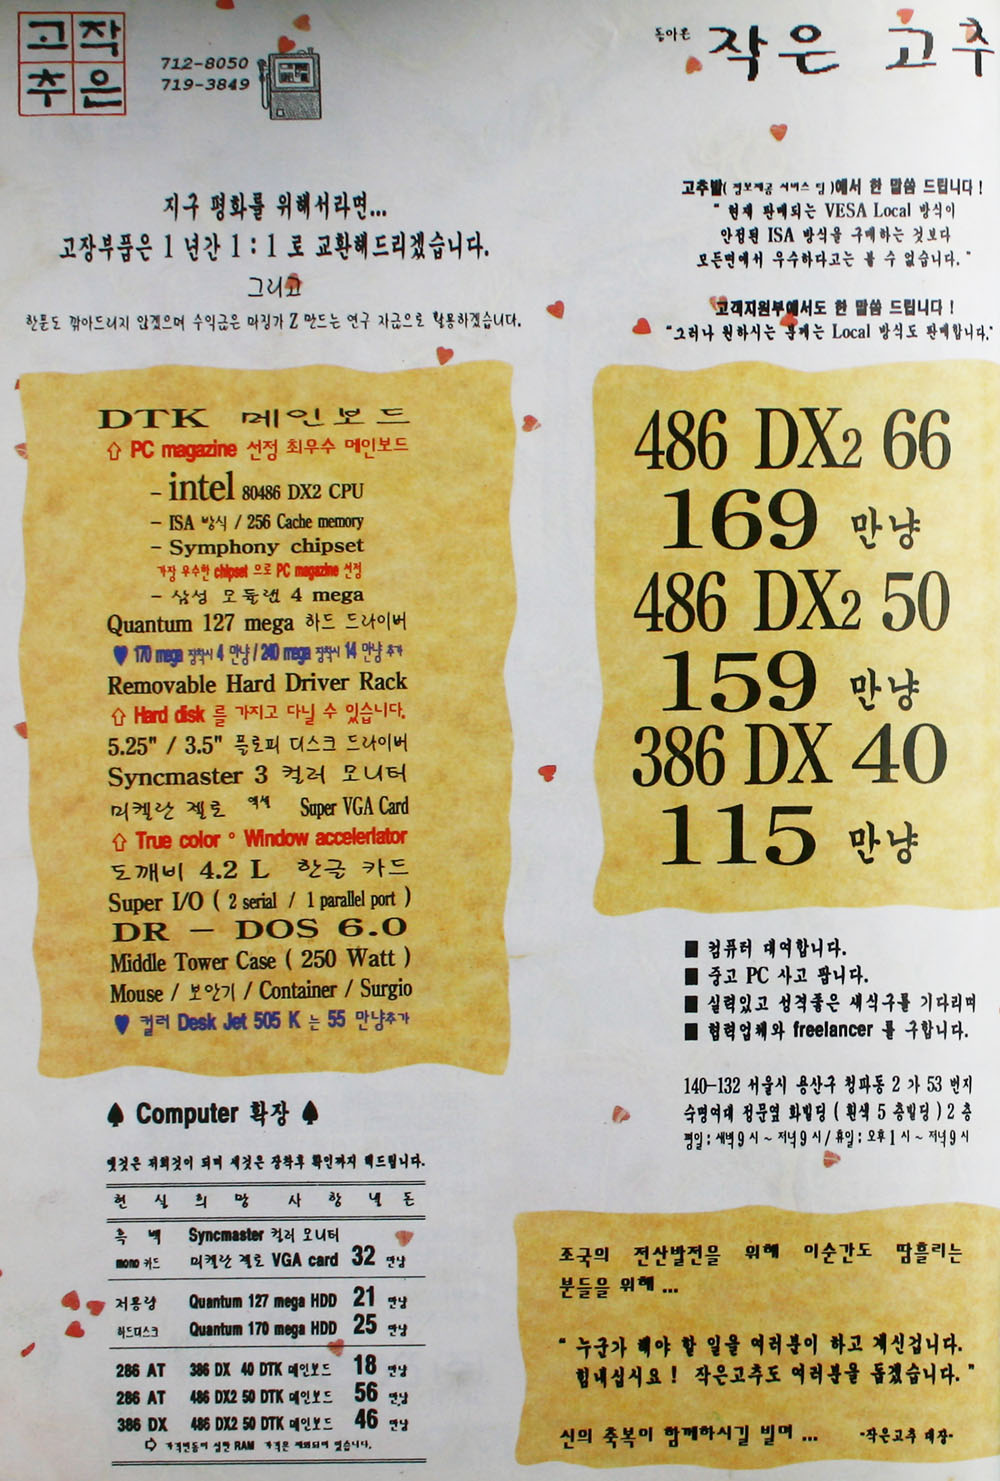 고작
추은
712-8050
719-3849
돌아온 작은 고추
지구 평화를 위해서라면...
고장부품은 1 년간 1 : 1 로 교환해드리겠습니다.
그리고
한푼도 깎아드리지 않겠으며 수익금은 마징가 Z 만드는 연구 자금으로 활용하겠습니다.
고추밭( 정보제공 서비스 팀 )에서 한 말씀 드립니다 !
" 현재 판매되는 VESA Local 방식이
안정된 ISA 방식을 구매하는 것보다
모든면에서 우수하다고는 볼 수 없습니다. "
고객지원부에서도 한 말씀 드립니다 !
" 그러나 원하시는 분께는 Local 방식도 판매합니다."
DTK 메인보드
⇧ PC magazine 선정 최우수 메인보드
- intel 80486 DX2 CPU
- ISA 방식 / 256 Cache memory
- Symphony chipset
가장 우수한 chipset 으로 PC magazine 선정
- 삼성 모듈램 4 mega
Quantum 127 mega 하드 드라이버
♥ 170 mega 장착시 4 만냥 / 240 mega 장착시 14 만냥 추가
Removable Hard Driver Rack
⇧ Hard disk 를 가지고 다닐 수 있습니다.
5.25" / 3.5" 플로피 디스크 드라이버
Syncmaster 3 컬러 모니터
미켈란 젤로 엑세 Super VGA Card
⇧ True color ° Window accelerlator
도깨비 4.2 L 한글 카드
Super I/O ( 2 serial / 1 parallel port )
DR - DOS 6.0
Middle Tower Case ( 250 Watt )
Mouse / 보안기 / Container / Surgio
♥ 컬러 Desk Jet 505 K 는 55 만냥추가
486 DX2 66
169 만냥
486 DX2 50
159 만냥
386 DX 40
115 만냥
■ 컴퓨터 대여합니다.
■ 중고 PC 사고 팝니다.
■ 실력있고 성격좋은 새식구를 기다리며
■ 협력업체와 freelancer 를 구합니다.
140-132 서울시 용산구 청파동 2 가 53 번지
숙명여대 정문옆 화빌딩 ( 흰색 5 층빌딩 ) 2 층
평일 : 새벽 9 시 ~ 저녁 9 시 / 휴일 : 오후 1 시 ~ 저녁 9 시
♠ Computer 확장 ♠
옛것은 저희것이 되며 새것은 장착후 확인까지 해드립니다.
현 실 희 망 사 항 낼 돈
흑 백 Syncmaster 컬러 모니터
mono 카드 미켈란 젤로 VGA card 32 만냥
저용량 Quantum 127 mega HDD 21 만냥
하드디스크 Quantum 170 mega HDD 25 만냥
286 AT 386 DX 40 DTK 메인보드 18 만냥
286 AT 486 DX2 50 DTK 메인보드 56 만냥
386 DX 486 DX2 50 DTK 메인보드 46 만냥
⇨ 가격변동이 심한 RAM 가격은 제외되어 있습니다.
조국의 전산발전을 위해 이순간도 땀흘리는
분들을 위해 ...
" 누군가 해야 할 일을 여러분이 하고 계신겁니다.
힘내십시요 ! 작은고추도 여러분을 돕겠습니다. "
신의 축복이 함께하시길 빌며 ... -작은고추 대장-